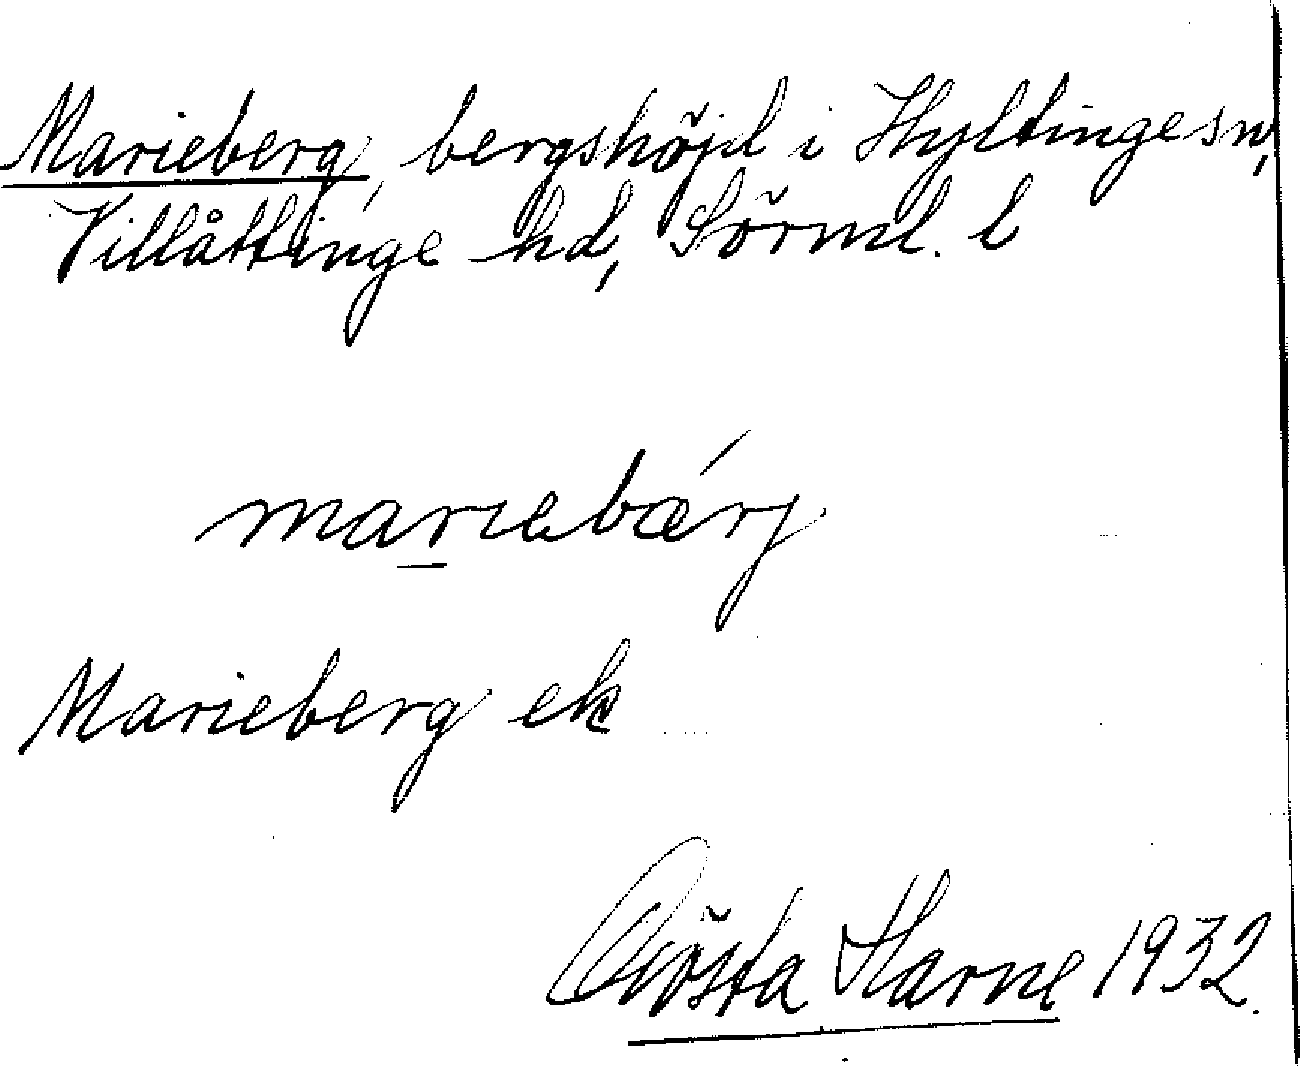 Marieberg, bergshöjd i Hyltinge sn,
Villåttinge hd, Sörml. l
mariebǽrj
Marieberg ek
Gösta Harne 1932.